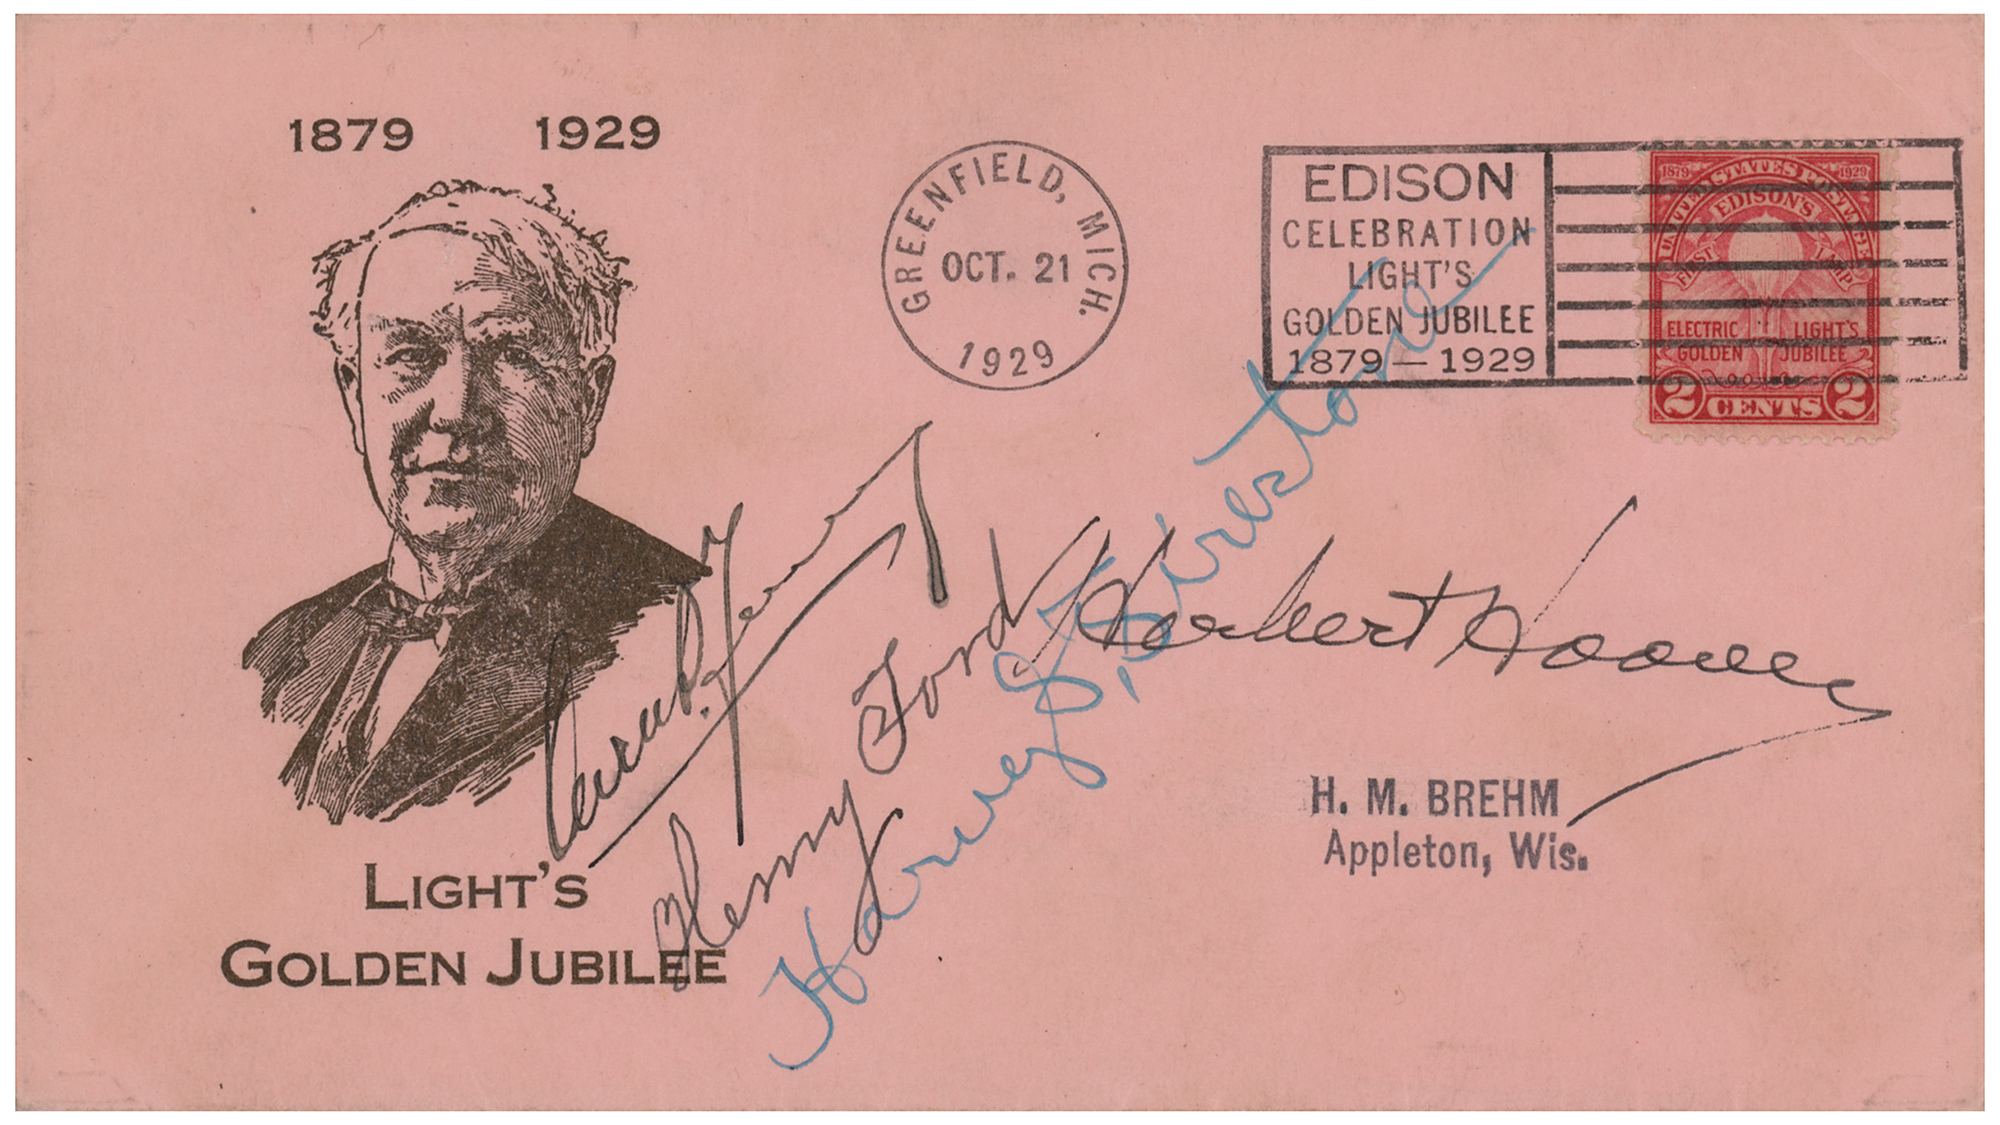 1879 1929
GREENFIELD, MICH.
OCT. 21
1929
EDISON
CELEBRATION
LIGHT'S
GOLDEN JUBILEE
1879 — 1929
1879 1929
UNITED STATES POSTAGE
EDISON'S
FIRST LAMP
ELECTRIC LIGHT'S
GOLDEN JUBILEE
2 CENTS 2
Henry Ford
Harvey S. Firestone
Herbert Hoover
H. M. BREHM
Appleton, Wis.
LIGHT'S
GOLDEN JUBILEE